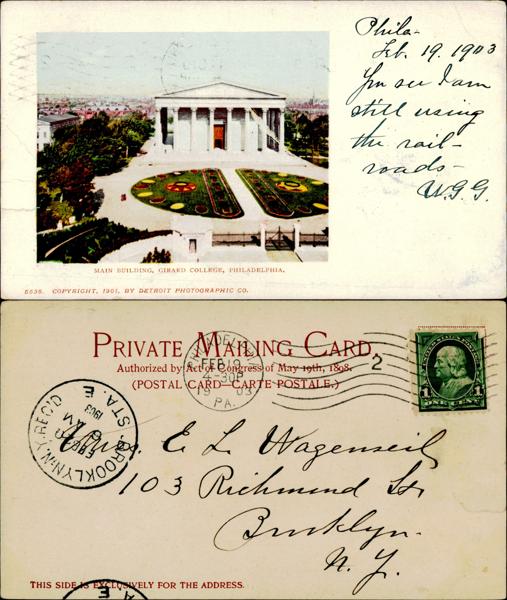 Phila-
Feb. 19. 1903
You see I am
still using
the rail-
roads-
W.G.G.
MAIN BUILDING, GIRARD COLLEGE, PHILADELPHIA.
5536. COPYRIGHT, 1901, BY DETROIT PHOTOGRAPHIC CO.
PRIVATE MAILING CARD.
Authorized by Act of Congress of May 19th, 1898.
(POSTAL CARD—CARTE POSTALE.)
PHILADELPHIA
FEB 19
4-30P
19 03
PA.
2
1 ONE CENT 1
BROOKLYN, N.Y. REC'D
STA. E
FEB
1903
E. L. Wagenseil
103 Richmond St.
Brooklyn.
N. Y.
THIS SIDE IS EXCLUSIVELY FOR THE ADDRESS.
A. E